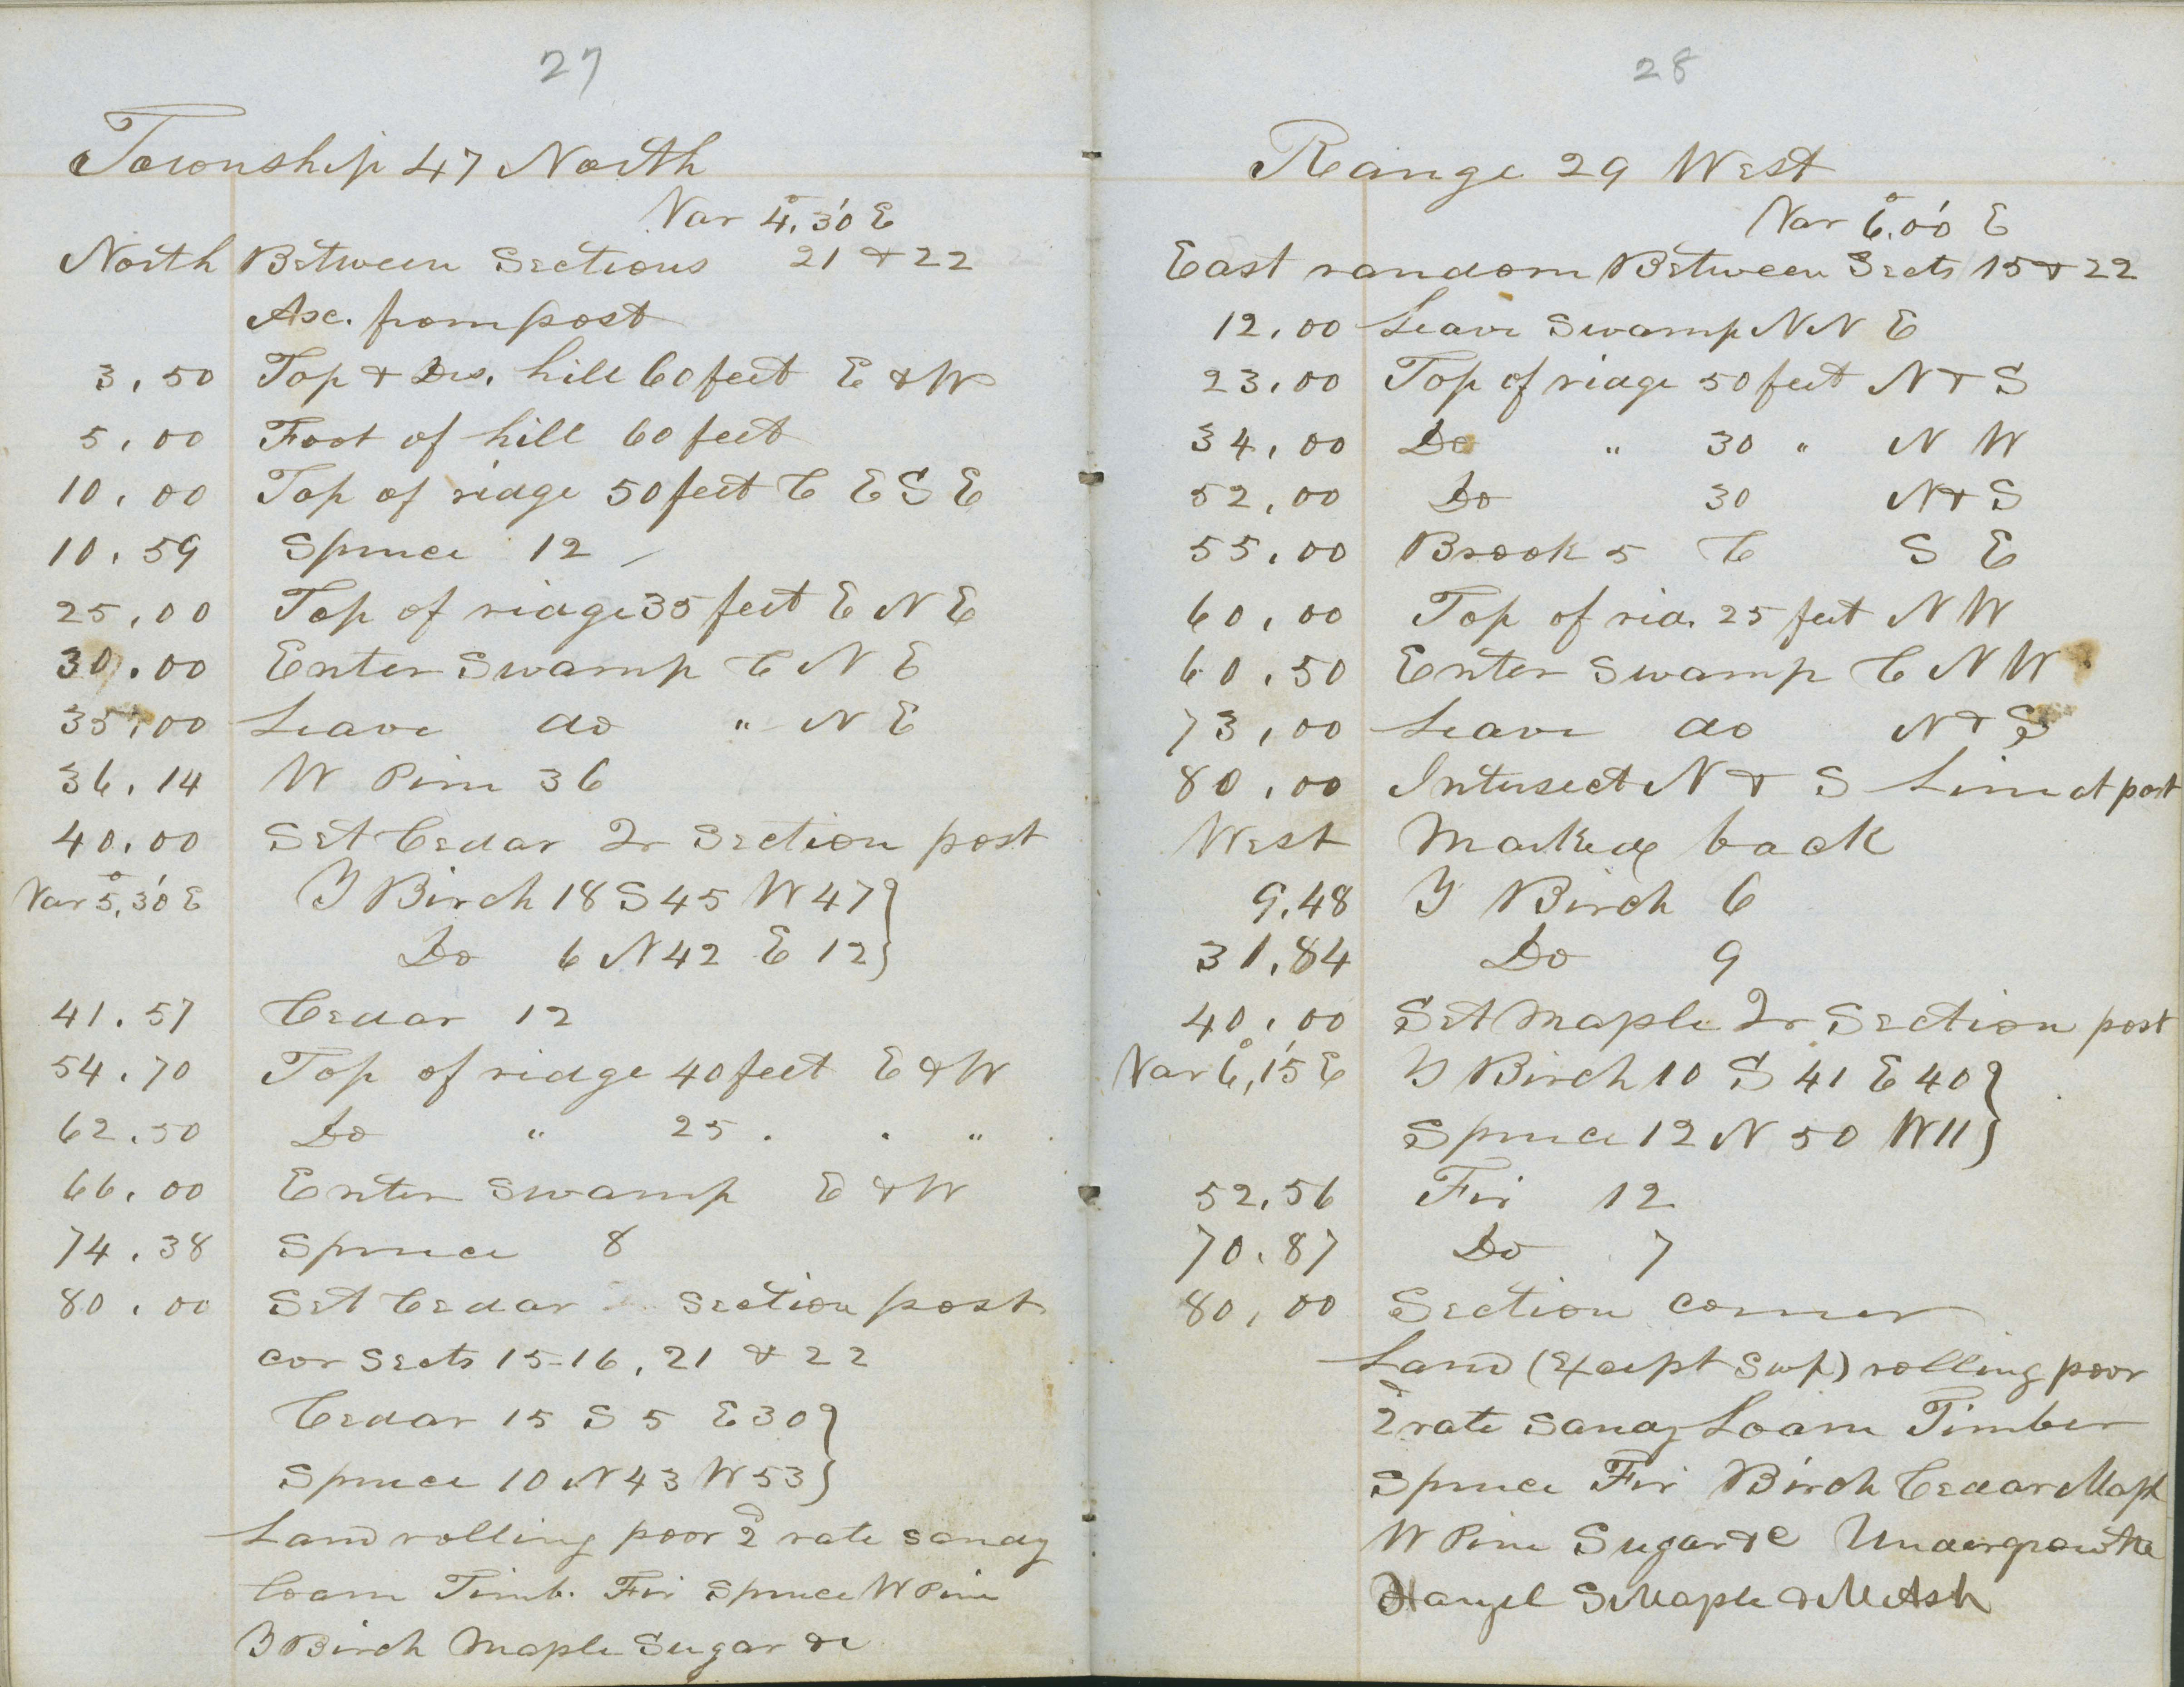 27
Township 47 North
Var 4°,30' E
North Between Sections 21 & 22
Asc. from post
3,50 Top & Des. hill 60 feet E & W
5,00 Foot of hill 60 feet
10,00 Top of ridge 50 feet C E S E
10.59 Spruce 12
25,00 Top of ridge 35 feet E N E
30.00 Enter Swamp C N E
35,00 Leave do " N E
36.14 W Pine 36
40.00 Set Cedar Qr Section post
Var 5°,30' E Y Birch 18 S 45 W 47}
Do 6 N 42 E 12}
41.57 Cedar 12
54.70 Top of ridge 40 feet E & W
62.50 Do " 25 . . "
66.00 Enter Swamp E & W
74.38 Spruce 8
80.00 Set Cedar Section post
cor Sects 15-16, 21 & 22
Cedar 15 S 5 E 30}
Spruce 10 N 43 W 53}
Land rolling poor 2d rate sandy
loam Timb. Fir Spruce W Pine
Y Birch Maple Sugar &c
28
Range 29 West
Var 6°.00' E
East random Between Sects 15 & 22
12,00 Leave Swamp N N E
23,00 Top of ridge 50 feet N & S
34,00 Do " 30 " N W
52,00 Do 30 N & S
55,00 Brook 5 C S E
60,00 Top of rid. 25 feet N W
60.50 Enter Swamp C N W
73,00 Leave do N & S
80,00 Intersect N & S Line at post
West Marked back
9.48 Y Birch 6
31,84 Do 9
40,00 Set Maple Qr Section post
Var 6°,15' E Y Birch 10 S 41 E 40}
Spruce 12 N 50 W 11}
52,56 Fir 12
70.87 Do 7
80,00 Section corner
Land (Except Swp) rolling poor
2d rate Sandy Loam Timber
Spruce Fir Birch Cedar Mapl
W Pine Sugar &c Undergrowth
Hazel S Maple & M Ash